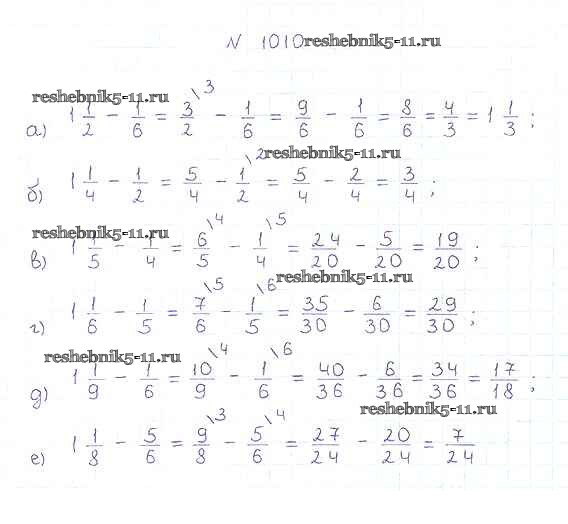 N 1010 reshebnik5-11.ru
reshebnik5-11.ru
а) 1 1/2 - 1/6 = 3/2 \3 - 1/6 = 9/6 - 1/6 = 8/6 = 4/3 = 1 1/3 ;
reshebnik5-11.ru
б) 1 1/4 - 1/2 = 5/4 - 1/2 \2 = 5/4 - 2/4 = 3/4 ;
reshebnik5-11.ru
в) 1 1/5 - 1/4 = 6/5 \4 - 1/4 \5 = 24/20 - 5/20 = 19/20 ;
reshebnik5-11.ru
г) 1 1/6 - 1/5 = 7/6 \5 - 1/5 \6 = 35/30 - 6/30 = 29/30 ;
reshebnik5-11.ru
д) 1 1/9 - 1/6 = 10/9 \4 - 1/6 \6 = 40/36 - 6/36 = 34/36 = 17/18 ;
reshebnik5-11.ru
е) 1 1/8 - 5/6 = 9/8 \3 - 5/6 \4 = 27/24 - 20/24 = 7/24